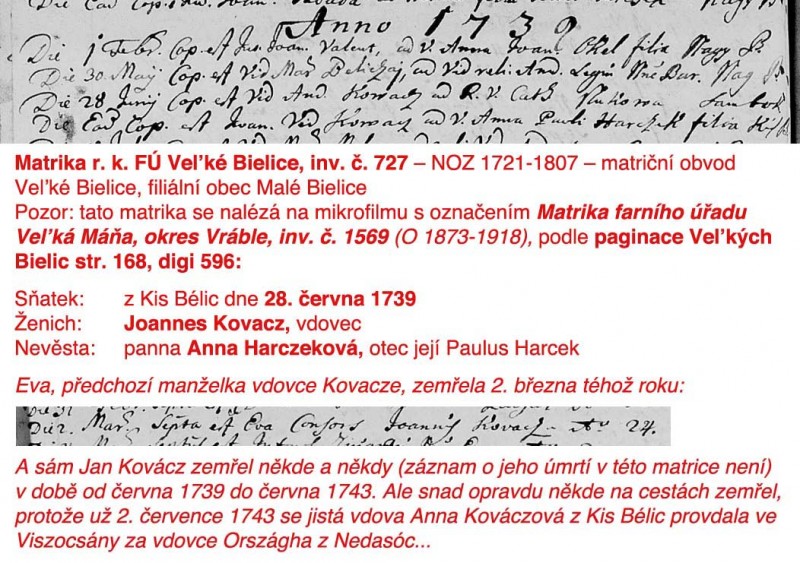 Anno 1739
Die 1 Febr. Cop. est Juv. Joan. Valent, ad V. Anna Joan. filia Nagy
Die 30 May Cop. est Vid Mat ad Vid reli: And. Nag
Die 28 Junij Cop. est Vid And. Kowacz ad R. V. Cath
Die Ead Cop. est Joan. Vid Kowacz ad V. Anna Pauli Harczek filia
Matrika r. k. FÚ Veľké Bielice, inv. č. 727 – NOZ 1721-1807 – matriční obvod
Veľké Bielice, filiální obec Malé Bielice
Pozor: tato matrika se nalézá na mikrofilmu s označením Matrika farního úřadu
Veľká Máňa, okres Vráble, inv. č. 1569 (O 1873-1918), podle paginace Veľkých
Bielic str. 168, digi 596:
Sňatek: z Kis Bélic dne 28. června 1739
Ženich: Joannes Kovacz, vdovec
Nevěsta: panna Anna Harczeková, otec její Paulus Harcek
Eva, předchozí manželka vdovce Kovacze, zemřela 2. března téhož roku:
Die 2. Mar. Septa est Eva Consors Joannis Kovacz Ao 24.
A sám Jan Kovácz zemřel někde a někdy (záznam o jeho úmrtí v této matrice není)
v době od června 1739 do června 1743. Ale snad opravdu někde na cestách zemřel,
protože už 2. července 1743 se jistá vdova Anna Kováczová z Kis Bélic provdala ve
Viszocsány za vdovce Országha z Nedasóc...